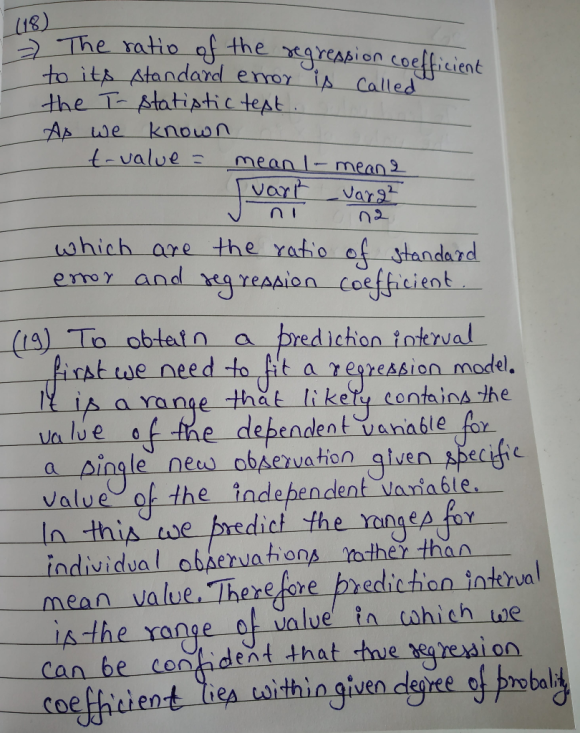 (18)
⇒ The ratio of the regression coefficient
to its standard error is called
the T-statistic test.
As we known
t-value = mean1 - mean2
√ var1² / n1 - var2² / n2
which are the ratio of standard
error and regression coefficient.
(19) To obtain a prediction interval
first we need to fit a regression model.
It is a range that likely contains the
value of the dependent variable for
a single new observation given specific
value of the independent variable.
In this we predict the ranges for
individual observations rather than
mean value. Therefore prediction interval
is the range of value in which we
can be confident that true regression
coefficient lies within given degree of probality